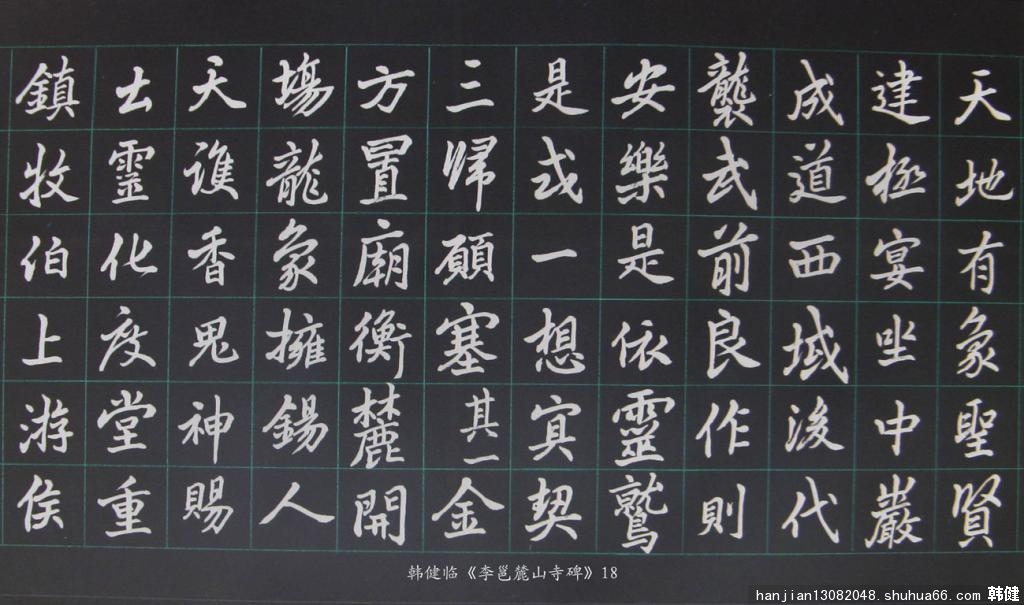 天地有象聖賢
建極宴坐中巖
成道西域後代
襲武前良作則
安樂是依靈鷲
是式一想冥契
三歸願塞其一金
方置廟衡麓開
場龍象擁錫人
天護香鬼神賜
出靈化度堂重
鎮牧伯上游侯
韩健临《李邕麓山寺碑》18
hanjian13082048.shuhua66.com 韩健